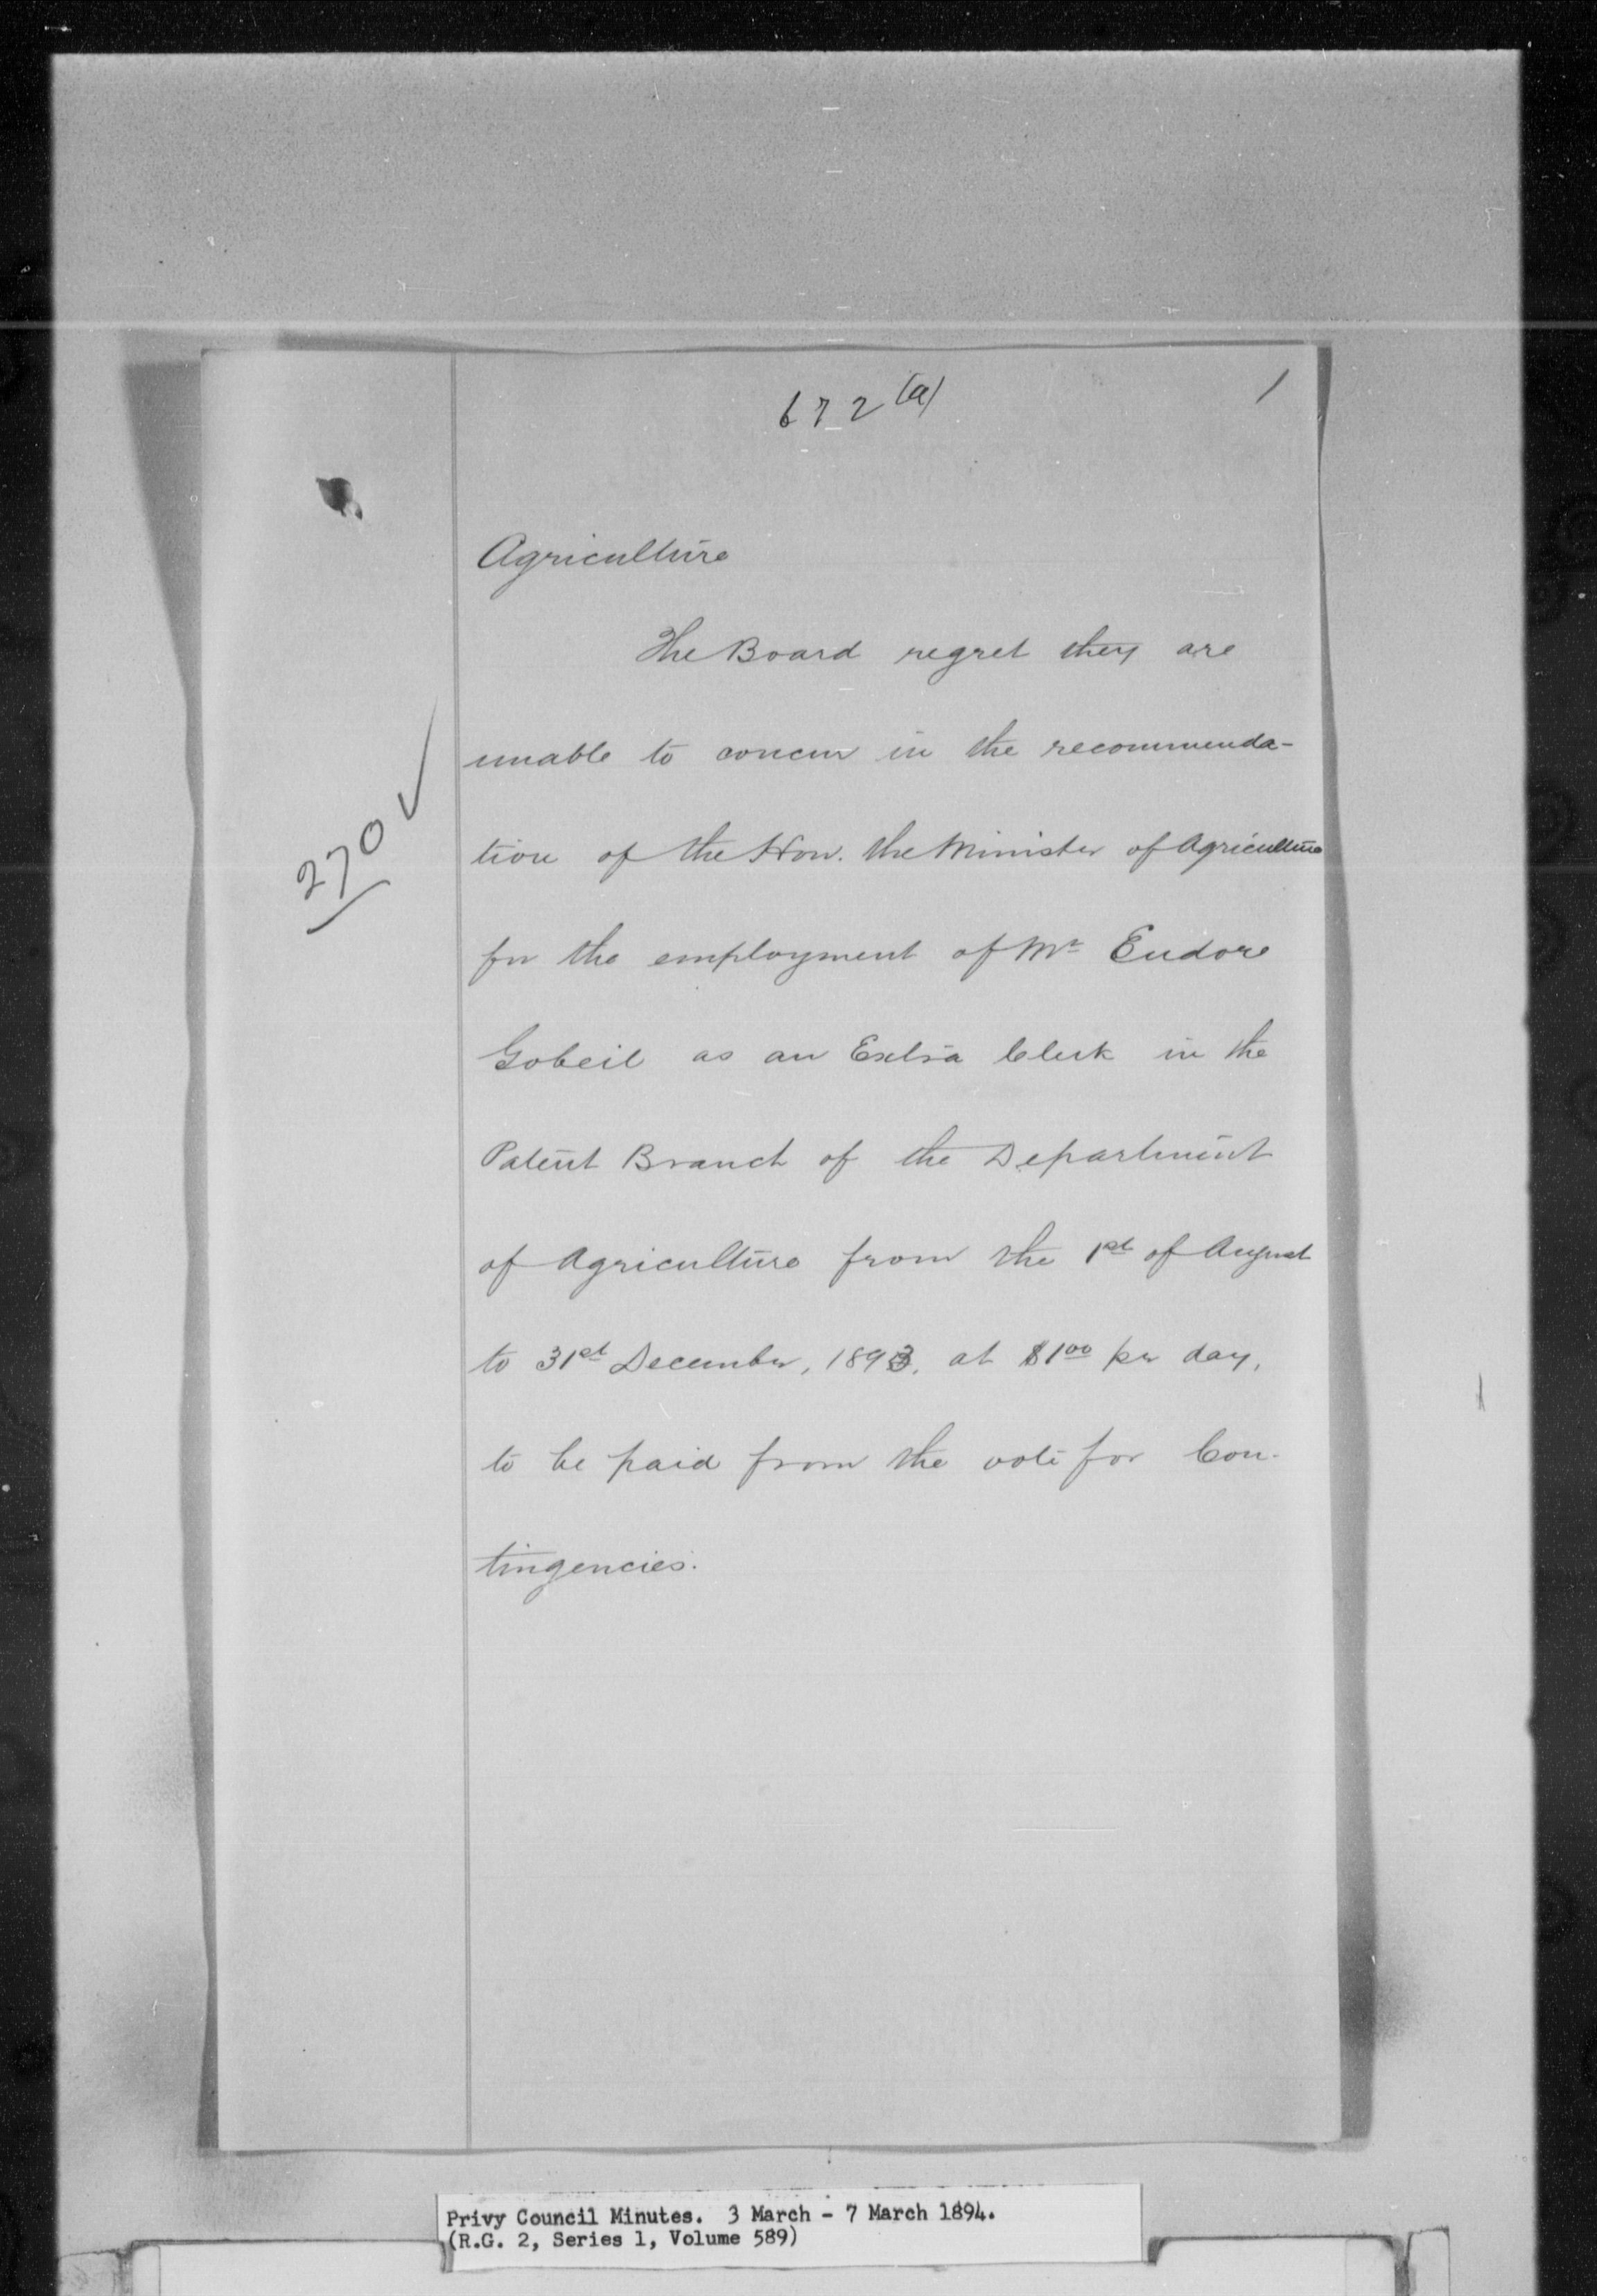 672(a)
1
Agriculture
The Board regret they are
unable to concur in the recommenda-
tion of the Hon. the Minister of Agriculture
270 ✓
for the employment of Mr Eudore
Gobeil as an Extra Clerk in the
Patent Branch of the Department
of Agriculture from the 1st of August
to 31st December, 1893, at $1.00 per day,
to be paid from the vote for Con-
tingencies.
Privy Council Minutes. 3 March - 7 March 1894.
(R.G. 2, Series 1, Volume 589)